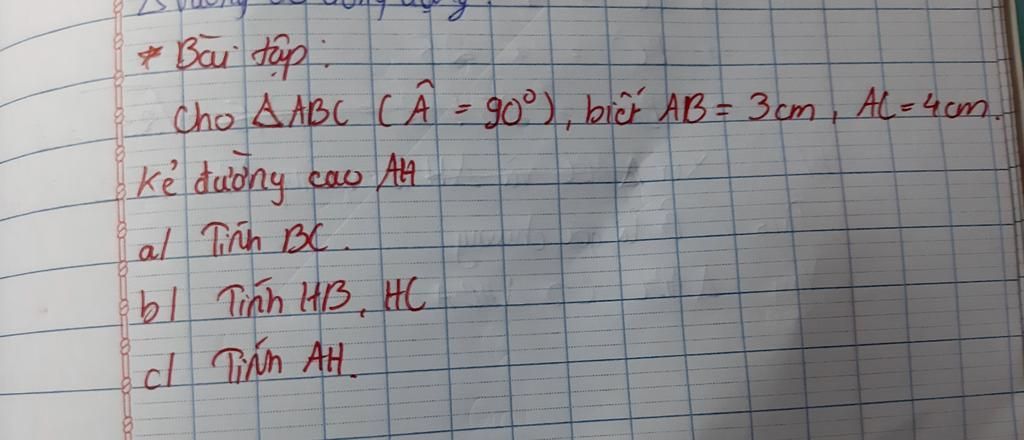 * Bài tập:
Cho △ABC (Â = 90°), biết AB = 3cm, AC = 4cm.
Kẻ đường cao AH
a/ Tính BC.
b/ Tính HB, HC
c/ Tính AH.